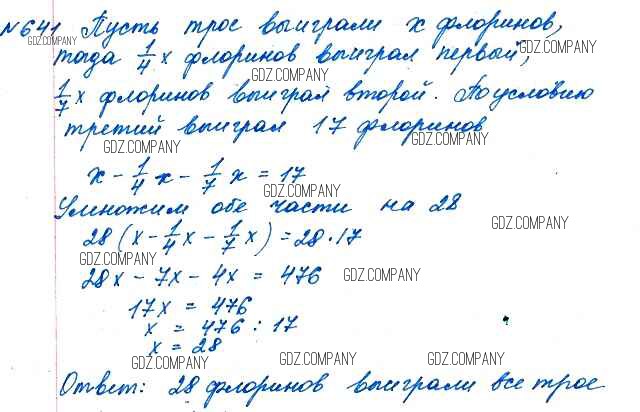 №641 Пусть трое выиграли x флоринов,
тогда 1/4 x флоринов выиграл первый,
1/7 x флоринов выиграл второй. По условию
третий выиграл 17 флоринов
x - 1/4 x - 1/7 x = 17
Умножим обе части на 28
28 (x - 1/4 x - 1/7 x) = 28 · 17
28x - 7x - 4x = 476
17x = 476
x = 476 : 17
x = 28
Ответ: 28 флоринов выиграли все трое
GDZ.COMPANY
GDZ.COMPANY
GDZ.COMPANY
GDZ.COMPANY
GDZ.COMPANY
GDZ.COMPANY
GDZ.COMPANY
GDZ.COMPANY
GDZ.COMPANY
GDZ.COMPANY
GDZ.COMPANY
GDZ.COMPANY
GDZ.COMPANY
GDZ.COMPANY